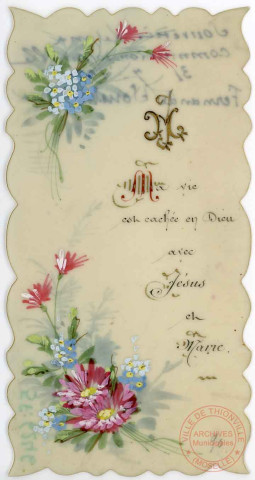 M
Ma vie
est cachée en Dieu
avec
Jésus
et
Marie.
VILLE DE THIONVILLE
ARCHIVES
Municipales
(MOSELLE)